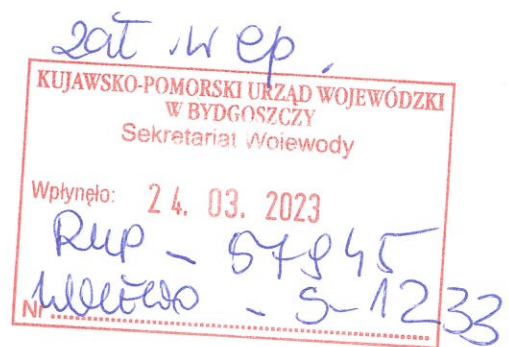 zał. w ep.
KUJAWSKO-POMORSKI URZĄD WOJEWÓDZKI
W BYDGOSZCZY
Sekretariat Wojewody
Wpłynęło: 24. 03. 2023
RUP - 57945
- S-1233
Nr